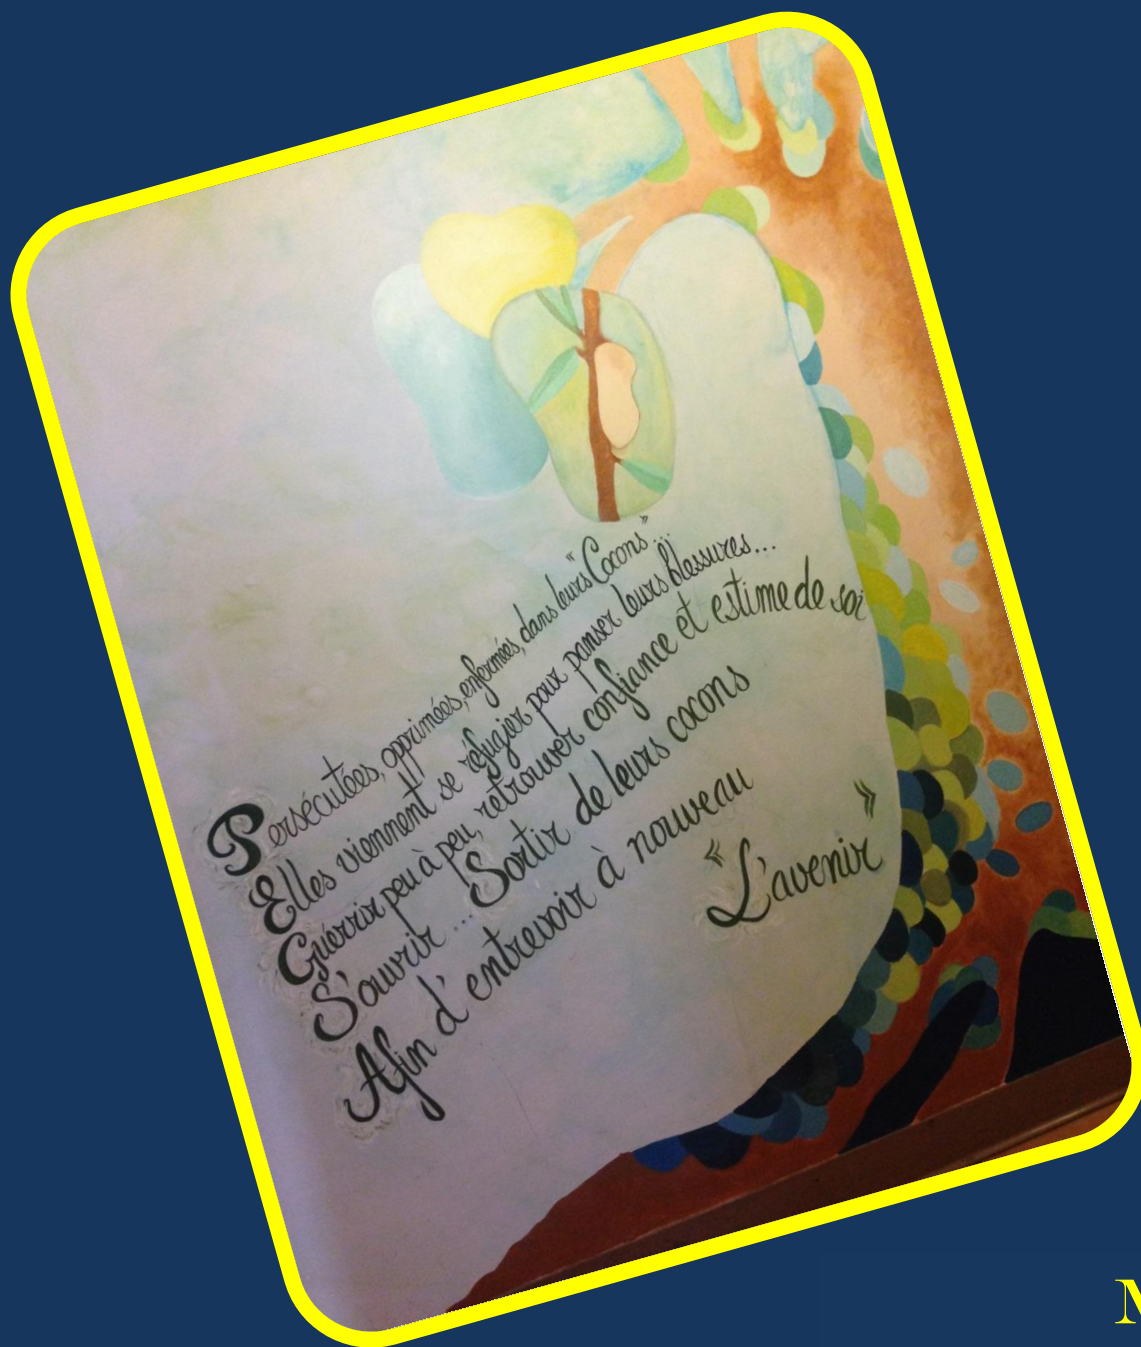 Persécutées, opprimées, enfermées, dans leurs "Cocons"...
Elles viennent se réfugier pour panser leurs blessures...
Guerrir peu à peu, retrouver confiance et estime de soi
S'ouvrir ... Sortir de leurs cocons
Afin d'entrevoir à nouveau
« L'avenir »